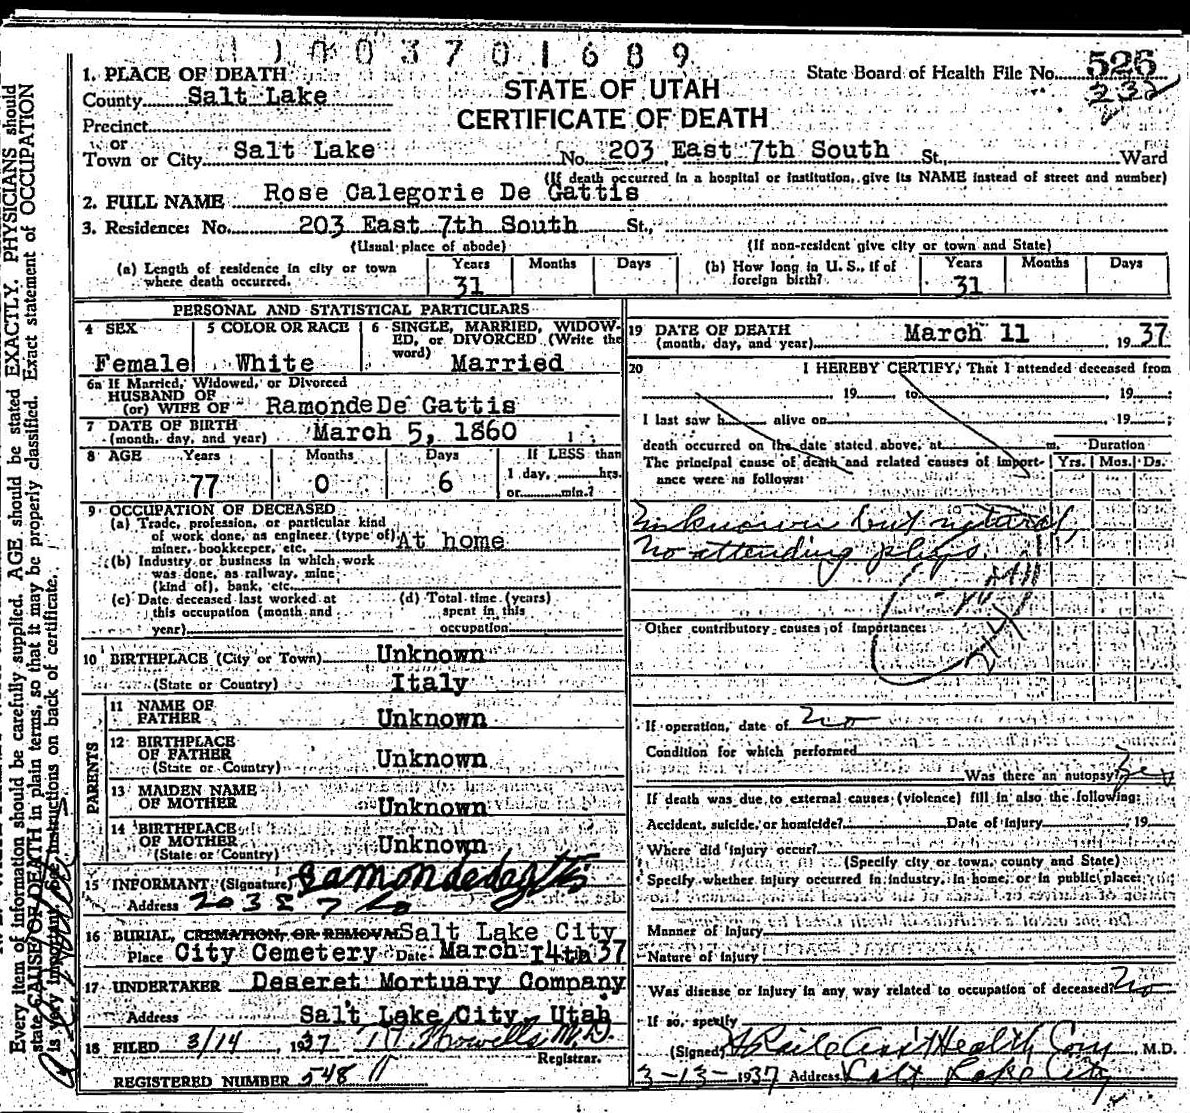 1003701689
1. PLACE OF DEATH
County Salt Lake
Precinct
or
Town or City Salt Lake
STATE OF UTAH
CERTIFICATE OF DEATH
State Board of Health File No. 526
232
No. 203 East 7th South St., Ward
(If death occurred in a hospital or institution, give its NAME instead of street and number)
2. FULL NAME Rose Calegorie De Gattis
3. Residence: No. 203 East 7th South St.,
(Usual place of abode) (If non-resident give city or town and State)
(a) Length of residence in city or town where death occurred. Years 31 Months Days
(b) How long in U. S., if of foreign birth? Years 31 Months Days
PERSONAL AND STATISTICAL PARTICULARS
4 SEX Female
5 COLOR OR RACE White
6 SINGLE, MARRIED, WIDOWED, or DIVORCED (Write the word) Married
6a If Married, Widowed, or Divorced
HUSBAND OF
(or) WIFE OF Ramonde De Gattis
7 DATE OF BIRTH
(month, day, and year) March 5, 1860
8 AGE Years 77 Months 0 Days 6 If LESS than 1 day, hrs. or min.?
9 OCCUPATION OF DECEASED
(a) Trade, profession, or particular kind
of work done, as engineer (type of)
miner, bookkeeper, etc. At home
(b) Industry or business in which work
was done, as railway, mine
(kind of), bank, etc.
(c) Date deceased last worked at
this occupation (month and
year)
(d) Total time (years)
spent in this
occupation
10 BIRTHPLACE (City or Town) Unknown
(State or Country) Italy
PARENTS
11 NAME OF
FATHER Unknown
12 BIRTHPLACE
OF FATHER
(State or Country) Unknown
13 MAIDEN NAME
OF MOTHER Unknown
14 BIRTHPLACE
OF MOTHER
(State or Country) Unknown
15 INFORMANT (Signature) Ramondedegattis
Address 203 E 7 So
16 BURIAL, CREMATION, OR REMOVAL Salt Lake City
Place City Cemetery Date March 14th 37
17 UNDERTAKER Deseret Mortuary Company
Address Salt Lake City, Utah
18 FILED 3/14, 1937 Howells M.D.
Registrar.
REGISTERED NUMBER 548
19 DATE OF DEATH
(month, day, and year) March 11 1937
20 I HEREBY CERTIFY, That I attended deceased from
19 to 19 ;
I last saw h alive on 19 ;
death occurred on the date stated above, at m. Duration
The principal cause of death and related causes of importance were as follows: Yrs. Mos. Ds.
Unknown but natural
No attending phys.
Other contributory causes of importance:
If operation, date of No
Condition for which performed
Was there an autopsy?
If death was due to external causes (violence) fill in also the following:
Accident, suicide, or homicide? Date of injury 19
Where did injury occur?
(Specify city or town, county and State)
Specify whether injury occurred in industry, in home, or in public place:
Manner of injury
Nature of injury
Was disease or injury in any way related to occupation of deceased? No
If so, specify
(Signed) Health Com M.D.
3-13-1937 Address Salt Lake City
Every item of information should be carefully supplied. AGE should be stated EXACTLY. PHYSICIANS should
state CAUSE OF DEATH in plain terms, so that it may be properly classified. Exact statement of OCCUPATION
is very important. See instructions on back of certificate.